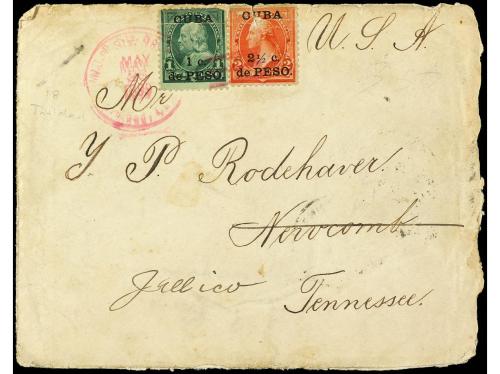 CUBA
1 c.
de PESO.
CUBA
2½ c.
de PESO.
U. S. A.
MAY
Mr
Y. P. Rodehaver
Newcomb
Jellico
Tennessee.